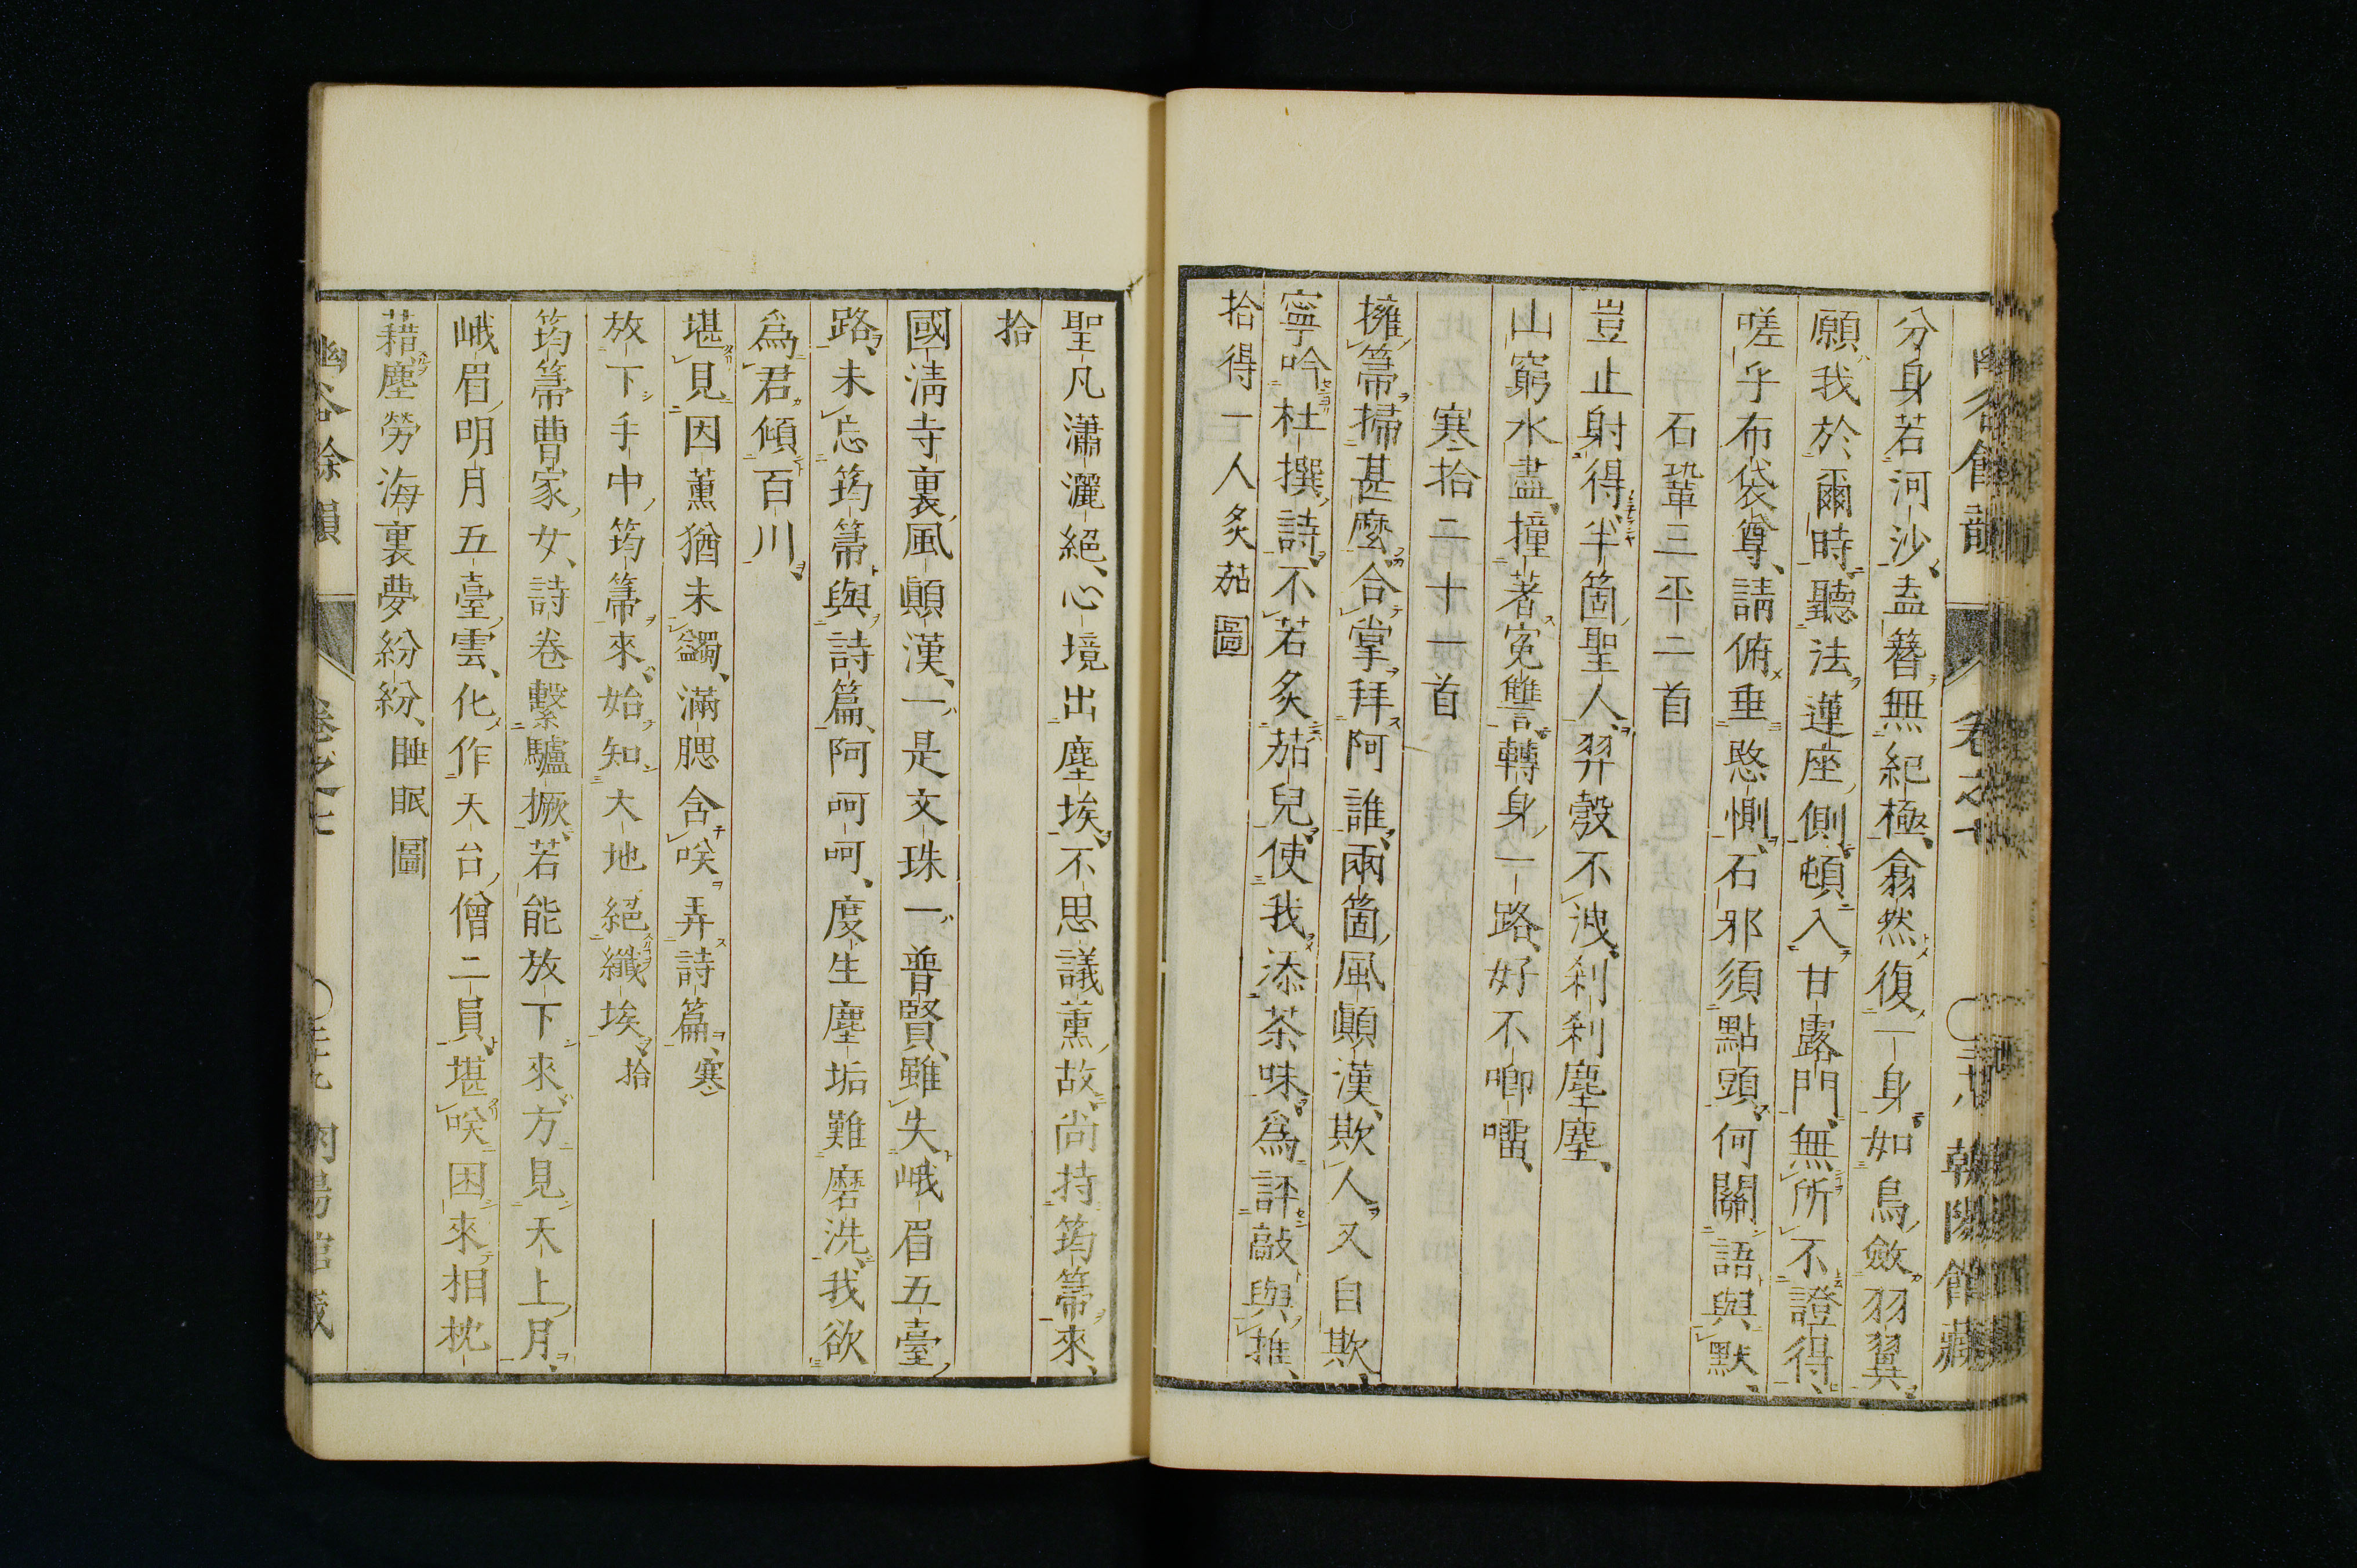 分身若河沙盍簪無紀極翕然復一身如鳥斂羽翼
願我於爾時聽法蓮座側頓入甘露門無所不證得
嗟乎布袋尊請俯垂愍惻石邪須點頭何關語與默
石鞏三平二首
豈止射得半箇聖人羿彀不洩刹刹塵塵
山窮水盡撞著寃讐轉身一路好不啷㘓
寒拾二十一首
擁箒掃甚麼合掌拜阿誰兩箇風顛漢欺人又自欺
寧吟杜撰詩不若炙茄兒使我添茶味爲評敲與推
拾得一人炙茄圖
聖凡瀟灑絕心境出塵埃不思議薰故尚持筠箒來
拾
國淸寺裏風顛漢一是文珠一普賢雖失峨眉五臺
路未忘筠箒與詩篇阿呵呵度生塵垢難磨洗我欲
爲君傾百川
堪見因薰猶未蠲滿腮含咲弄詩篇寒
放下手中筠箒來始知大地絕纖埃拾
筠箒曹家女詩卷繫驢橛若能放下來方見天上月
峨眉明月五臺雲化作天台僧二員堪咲困來相枕
藉塵勞海裏夢紛紛睡眠圖